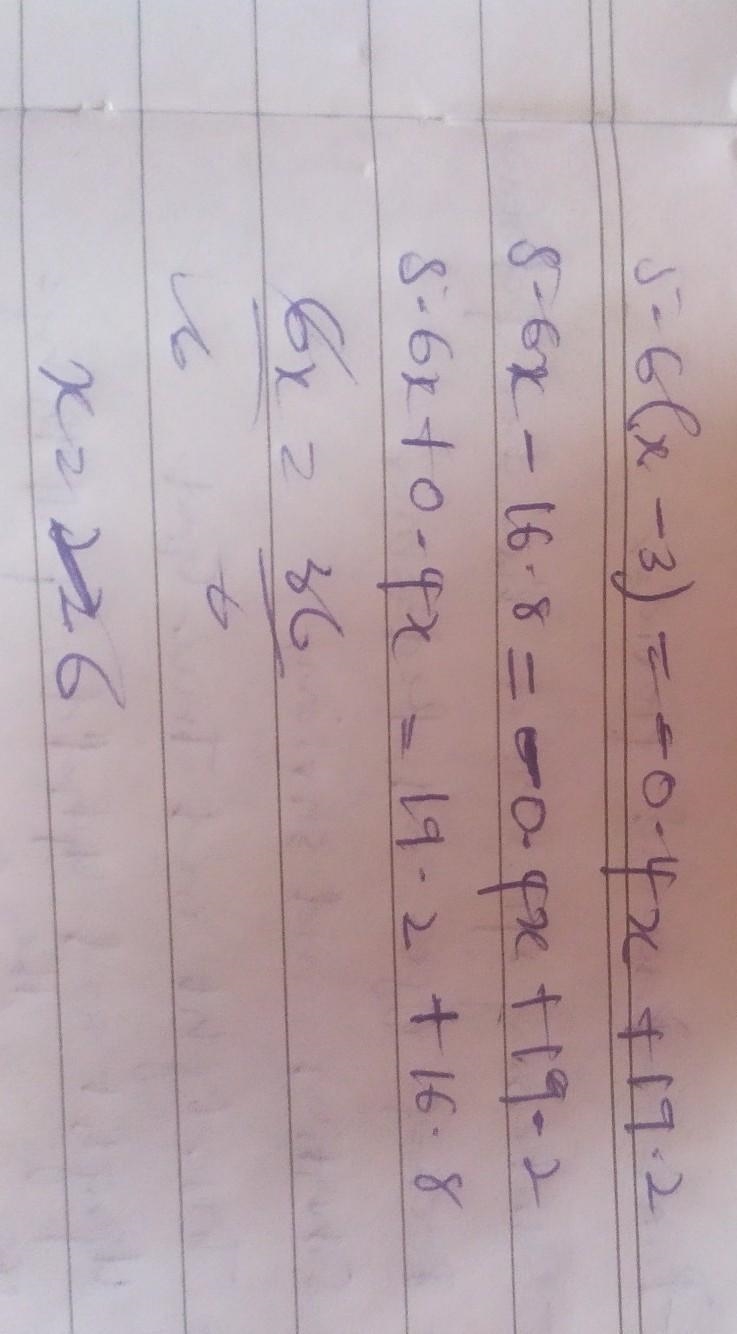 5.6(x-3) = -0.4x +19.2
5.6x - 16.8 = -0.4x +19.2
5.6x + 0.4x = 19.2 + 16.8
6x = 36
6 6
x = 6